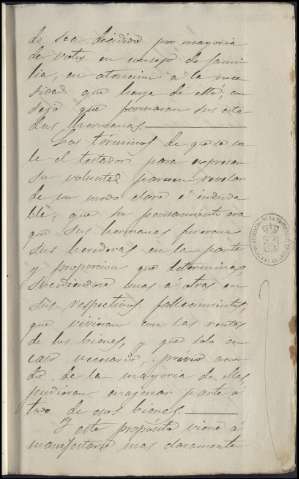 de ser decidido por mayoria
de votos en consejo de fami-
lia, en atencion á la nece-
sidad que haya de ello, en
que formaran sus
hermanas.
Los términos de que se va-
le el testador para expresar
su voluntad parecen revelar
de un modo claro é induda-
ble, que su pensamiento era
que sus hermanas fueran
sus herederas en la parte
y proporcion que determina,
sucediendose unas á otras en
sus respectivos fallecimientos,
que vivieran con las rentas
de los bienes, y que solo en
caso necesario, previo acuer-
do de la mayoria de ellas,
pudieran enajenar parte ó
todo de esos bienes.
Y este propósito viene á
manifestarse mas claramente